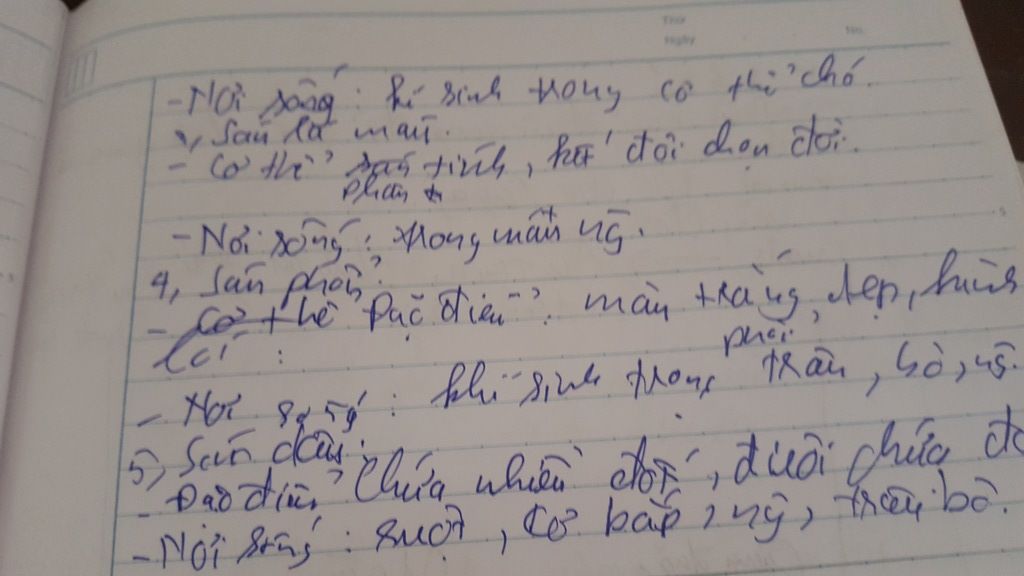 Thứ
Ngày
No.
- Nơi sống : kí sinh trong cơ thể chó.
3, Sán lá máu.
- Cơ thể phân tính, kết đôi
- Nơi sống : trong máu ng.
4, Sán phổi
- Cơ thể Đặc điểm : màu trắng, dẹp, hình
lá :
- Nơi sống : khí sinh trong phổi trâu, bò, ng.
5, Sán dây :
- Đặc điểm Chứa nhiều đốt, đuôi chứa
- Nơi sống : ruột, cơ bắp, ng, trâu bò.